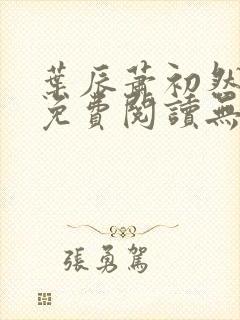 葉辰蕭初然
免費閱讀無
張勇駕